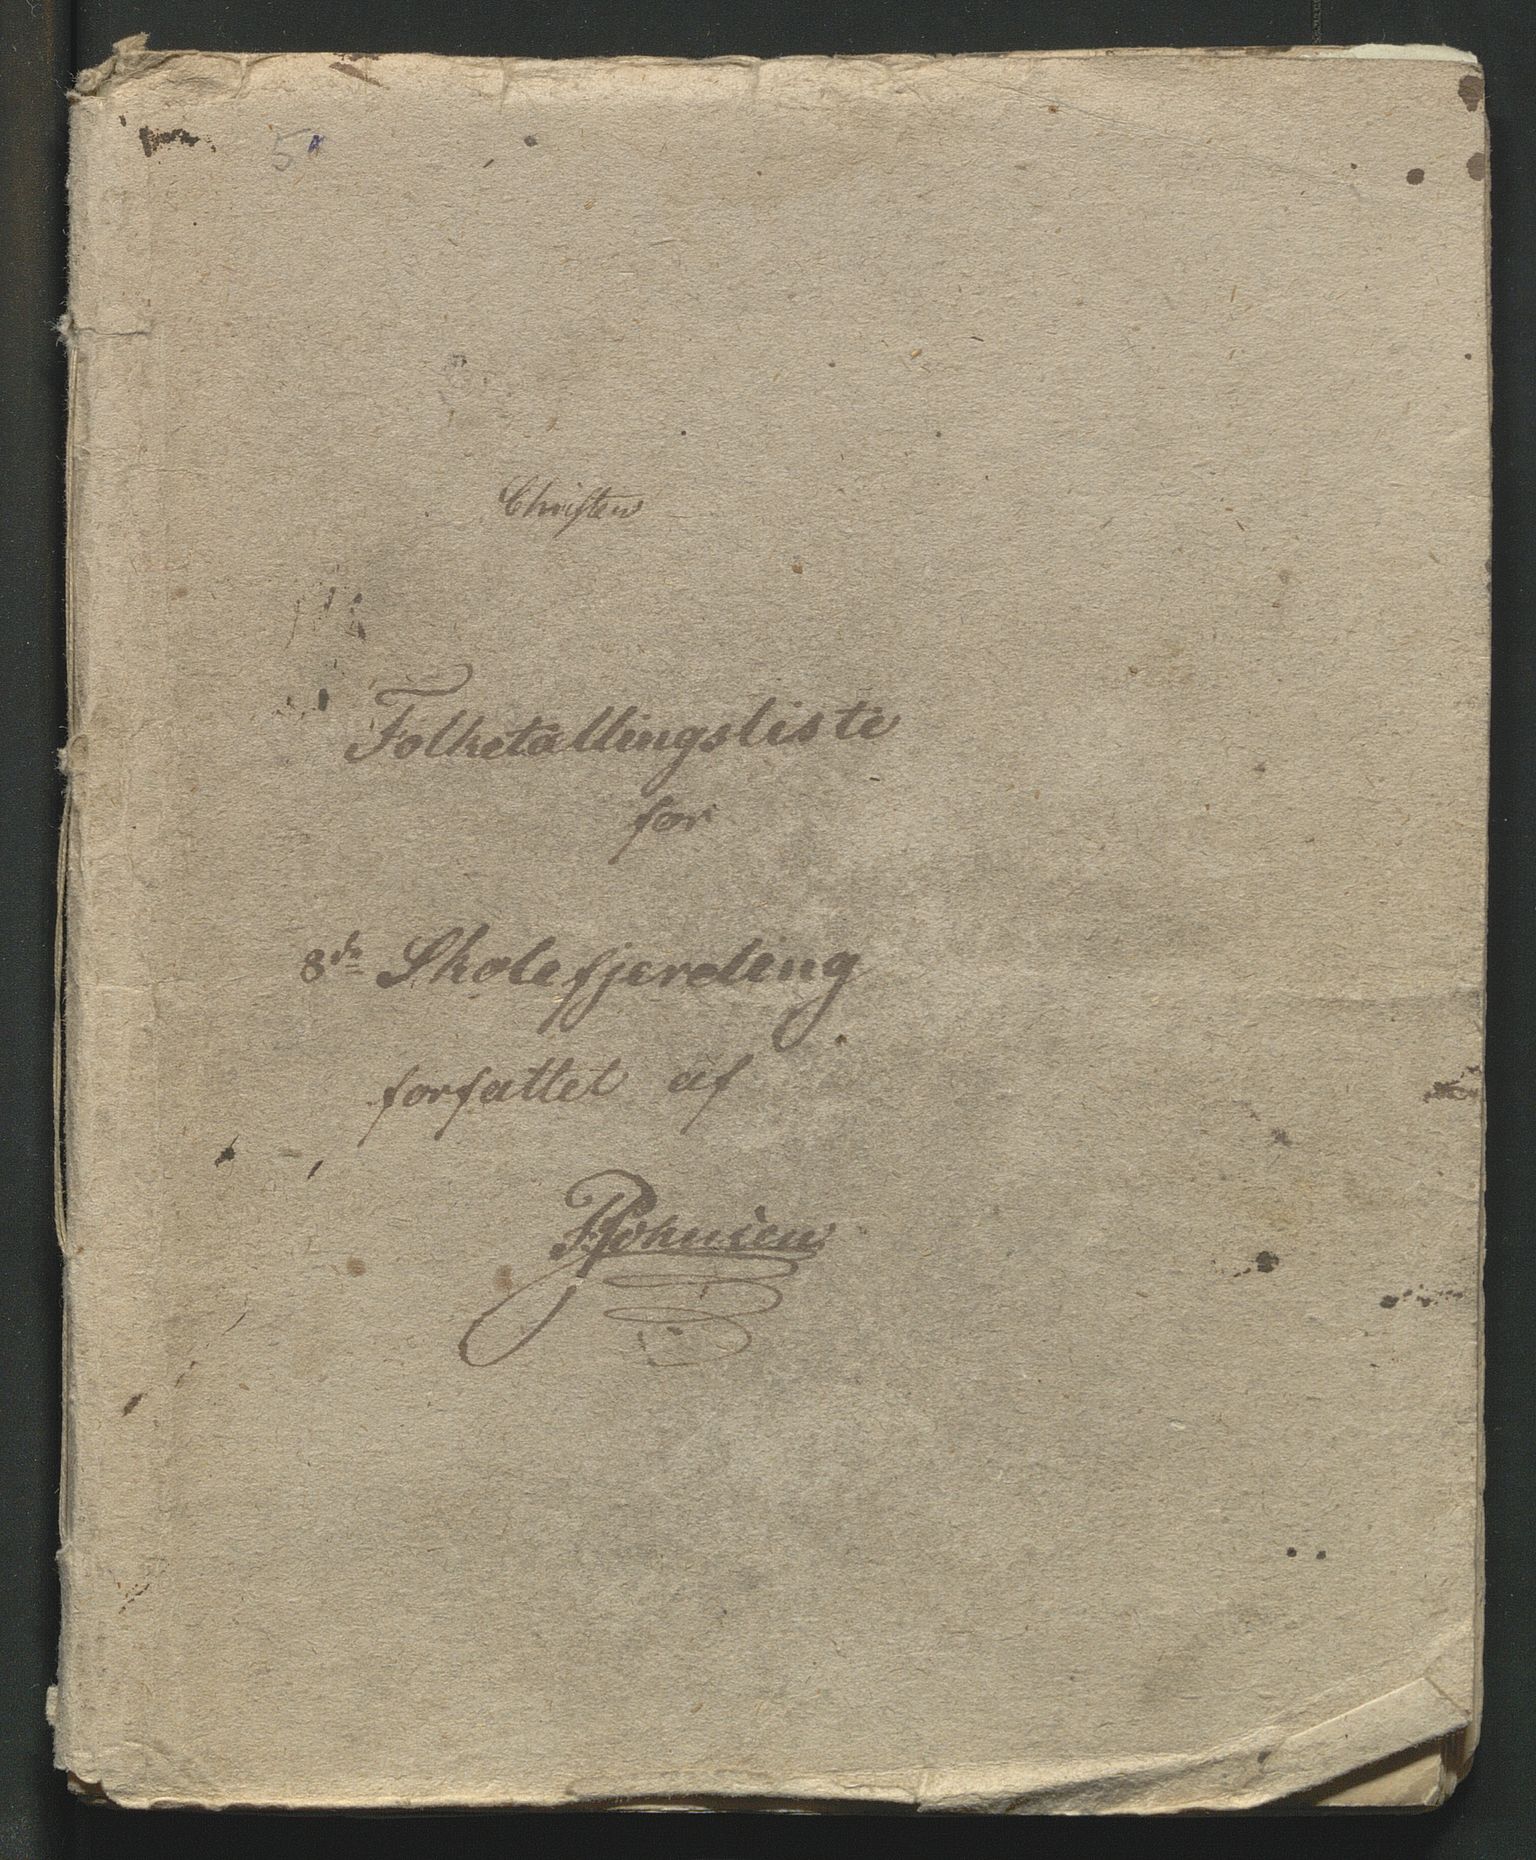 5
Christen
Folketallingsliste
for
8de Skolefjerding
forfattet af
Johnsen